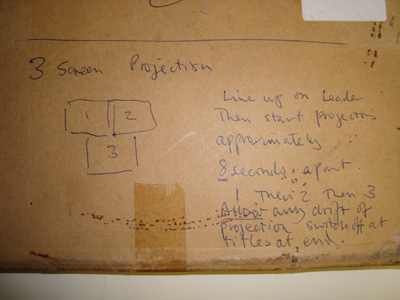 3 Screen Projection
1 2
3
Line up on Leader
Then start projectors
approximately
8 seconds apart
1 Then 2 Then 3
Allow any drift of
projection switch off at
titles at end.